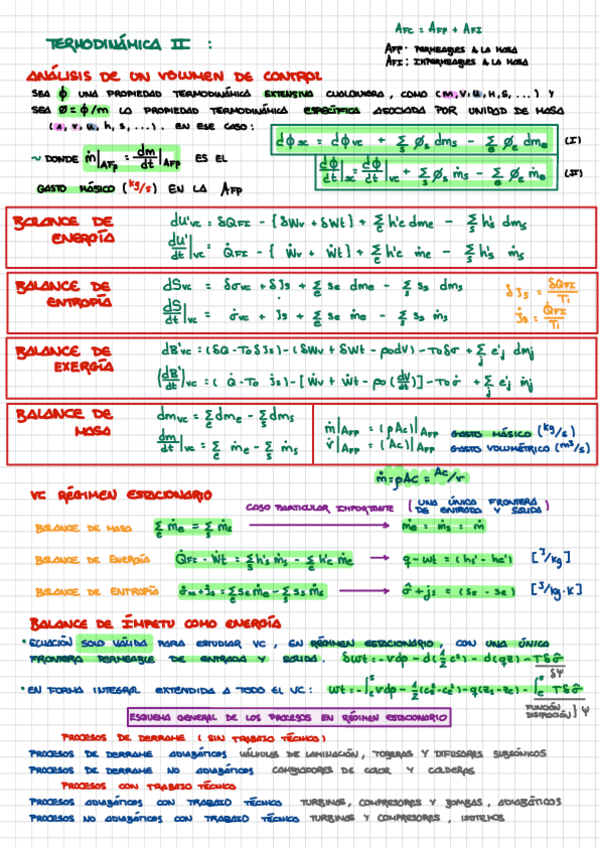 TERMODINÁMICA II :
AFC = AFP + AFI
AFP: PERMEABLES A LA MASA
AFI: IMPERMEABLES A LA MASA
ANÁLISIS DE UN VOLUMEN DE CONTROL
SEA ϕ UNA PROPIEDAD TERMODINÁMICA EXTENSIVA CUALQUIERA, COMO (m, V, U, H, S, ...) Y
SEA ø = ϕ/m LA PROPIEDAD TERMODINÁMICA ESPECÍFICA ASOCIADA POR UNIDAD DE MASA
(1, v, u, h, s, ...). EN ESE CASO:
dϕsc = dϕvc + Σs øs dms - Σe øe dme (I)
~ DONDE ṁ|AFP = dm/dt|AFP ES EL
dϕ/dt|sc = dϕ/dt|vc + Σs øs ṁs - Σe øe ṁe (II)
GASTO MÁSICO (kg/s) EN LA AFP
BALANCE DE ENERGÍA
dU'vc = δQFI - [δWv + δWt] + Σe h'e dme - Σs h's dms
dU'/dt|vc = Q̇FI - [Ẇv + Ẇt] + Σe h'e ṁe - Σs h's ṁs
BALANCE DE ENTROPÍA
dSvc = δσvc + δJs + Σe se dme - Σs ss dms
δJs = δQFI/Ti
dS/dt|vc = σ̇vc + J̇s + Σe se ṁe - Σs ss ṁs
J̇s = Q̇FI/Ti
BALANCE DE EXERGÍA
dB'vc = (δQ - To δJs) - (δWv + δWt - po dV) - To δσ + Σj e'j dmj
(dB'/dt)vc = (Q̇ - To J̇s) - [Ẇv + Ẇt - po (dV/dt)] - To σ̇ + Σj e'j ṁj
BALANCE DE MASA
dmvc = Σe dme - Σs dms
dm/dt|vc = Σe ṁe - Σs ṁs
ṁ|AFP = (ρAc)|AFP GASTO MÁSICO (kg/s)
V̇|AFP = (Ac)|AFP GASTO VOLUMÉTRICO (m³/s)
ṁ = ρAc = Ac/v
VC RÉGIMEN ESTACIONARIO
CASO PARTICULAR IMPORTANTE (UNA ÚNICA FRONTERA DE ENTRADA Y SALIDA)
BALANCE DE MASA Σe ṁe = Σs ṁs → ṁe = ṁs = ṁ
BALANCE DE ENERGÍA Q̇FI - Ẇt = Σs h's ṁs - Σe h'e ṁe → q - wt = (hs' - he') [J/kg]
BALANCE DE ENTROPÍA σ̇vc + J̇s = Σe se ṁe - Σs ss ṁs → σ̂ + js = (ss - se) [J/kg·K]
BALANCE DE ÍMPETU COMO ENERGÍA
• ECUACIÓN SOLO VÁLIDA PARA ESTUDIAR VC, EN RÉGIMEN ESTACIONARIO, CON UNA ÚNICA
FRONTERA PERMEABLE DE ENTRADA Y SALIDA. δwt = -vdp - d(½c²) - d(gz) - Tδσ̂
δψ
• EN FORMA INTEGRAL EXTENDIDA A TODO EL VC: wt = -∫vdp - ½(cs² - ce²) - g(zs - ze) - ∫Tδσ̂
FUNCIÓN DISIPACIÓN } ψ
ESQUEMA GENERAL DE LOS PROCESOS EN RÉGIMEN ESTACIONARIO
PROCESOS DE DERRAME (SIN TRABAJO TÉCNICO)
PROCESOS DE DERRAME ADIABÁTICOS VÁLVULAS DE LAMINACIÓN, TOBERAS Y DIFUSORES SUBSÓNICOS
PROCESOS DE DERRAME NO ADIABÁTICOS CAMBIADORES DE CALOR Y CALDERAS
PROCESOS CON TRABAJO TÉCNICO
PROCESOS ADIABÁTICOS CON TRABAJO TÉCNICO TURBINAS, COMPRESORES Y BOMBAS, ADIABÁTICOS
PROCESOS NO ADIABÁTICOS CON TRABAJO TÉCNICO TURBINAS Y COMPRESORES, ISOTERMOS